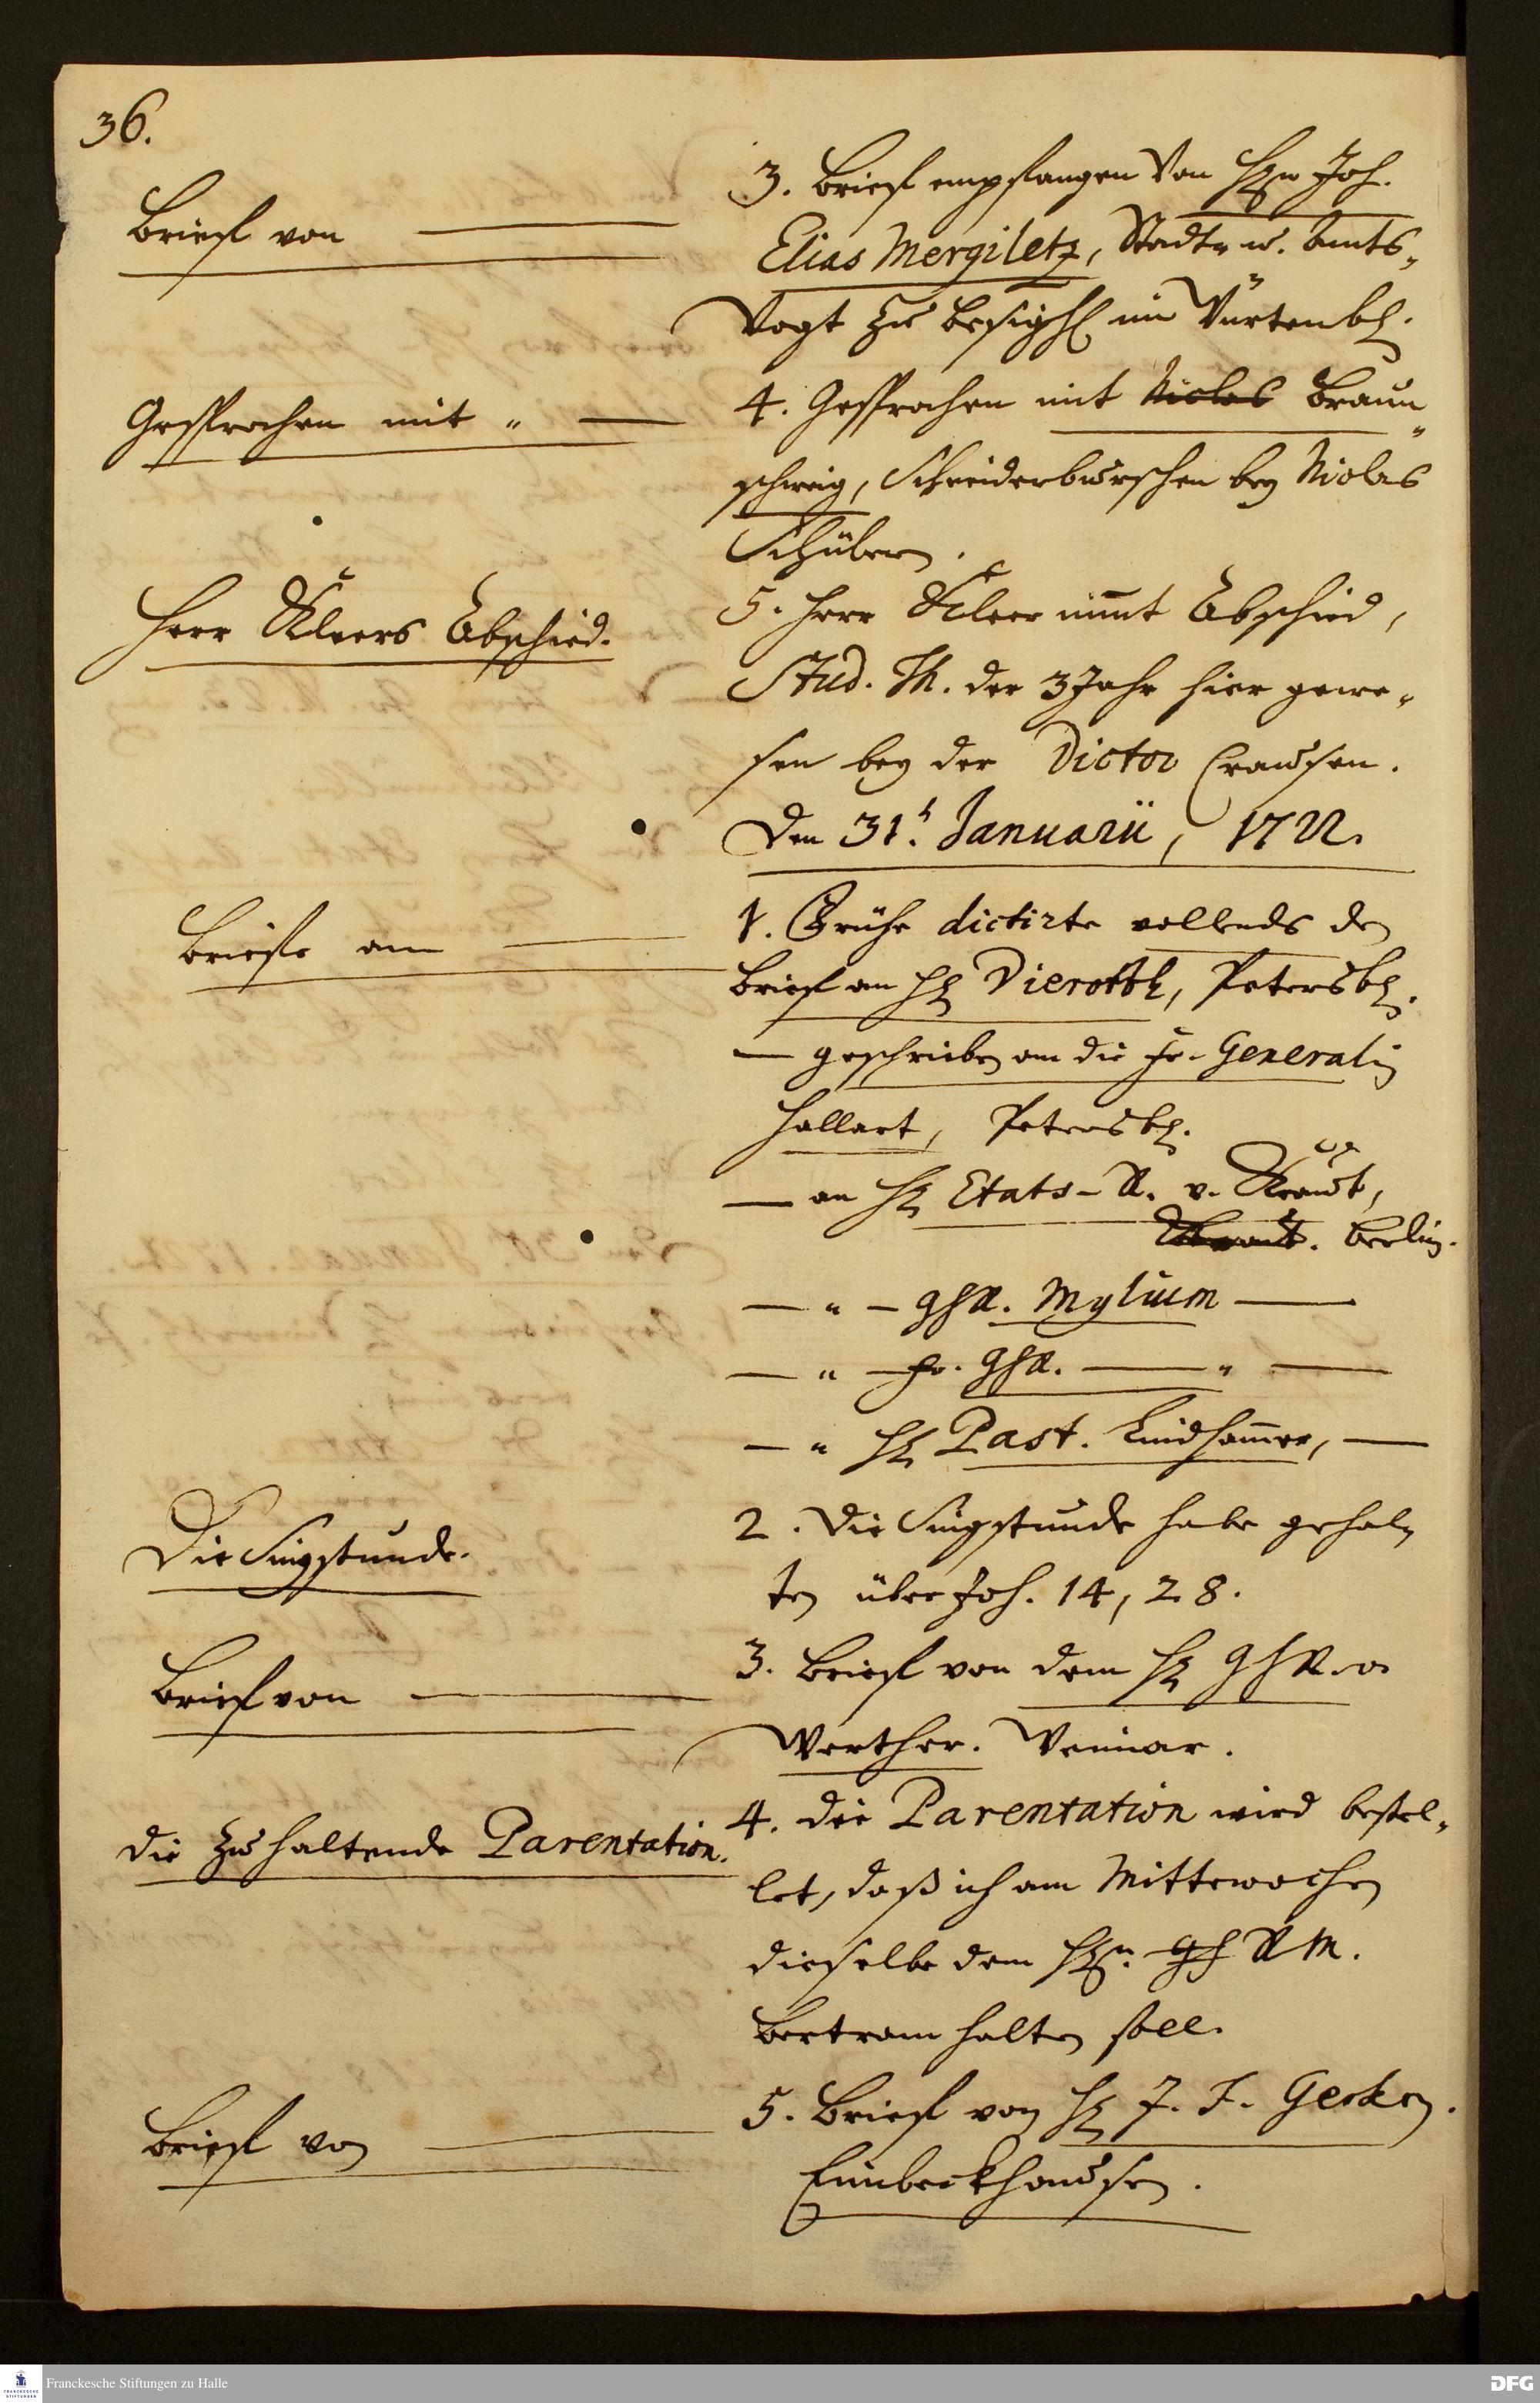 36.
Brief von
3. Brief empfangen von Hn Joh.
Elias Mergiletz, Stadt- u. Amts-
Vogt zu Besigh. im Würtenb.
Gesprochen mit "
4. Gesprochen mit Niclas Braun-
schweig, Schneiderburschen bey Niolas
Schüben.
Herr Kleers Abschied.
5. Herr Kleer nimt Abschied,
Stud. Th. der 3 Jahr hier gewe-
sen bey der Dictor Crausen.
Den 31t. Januarii, 1722.
Briefe an
1. Frühe dictirte vollends den
Brief an H. Petersb.
— geschrieben an die Fr. Generalin
Hallart, Petersb.
— an H. Etats-R. v. Kraut,
Kraut. Berlin.
— " — GhR. Mylium —
— " — Fr. GhR. — " —
— " H. Past. Lindhammer, —
Die Singstunde.
2. Die Singstunde habe gehal-
ten über Joh. 14, 28.
Brief von
3. Brief von dem H. GhR. v.
Werther. Weimar.
die zu haltende Parentation.
4. die Parentation wird bestel-
let, daß ich am Mittewochen
dieselbe dem Hn. Gh R M.
Bertram halten soll.
Brief von
5. Brief von H. J. F. Gerken.
Eimbeckhausen.
Franckesche Stiftungen zu Halle
DFG